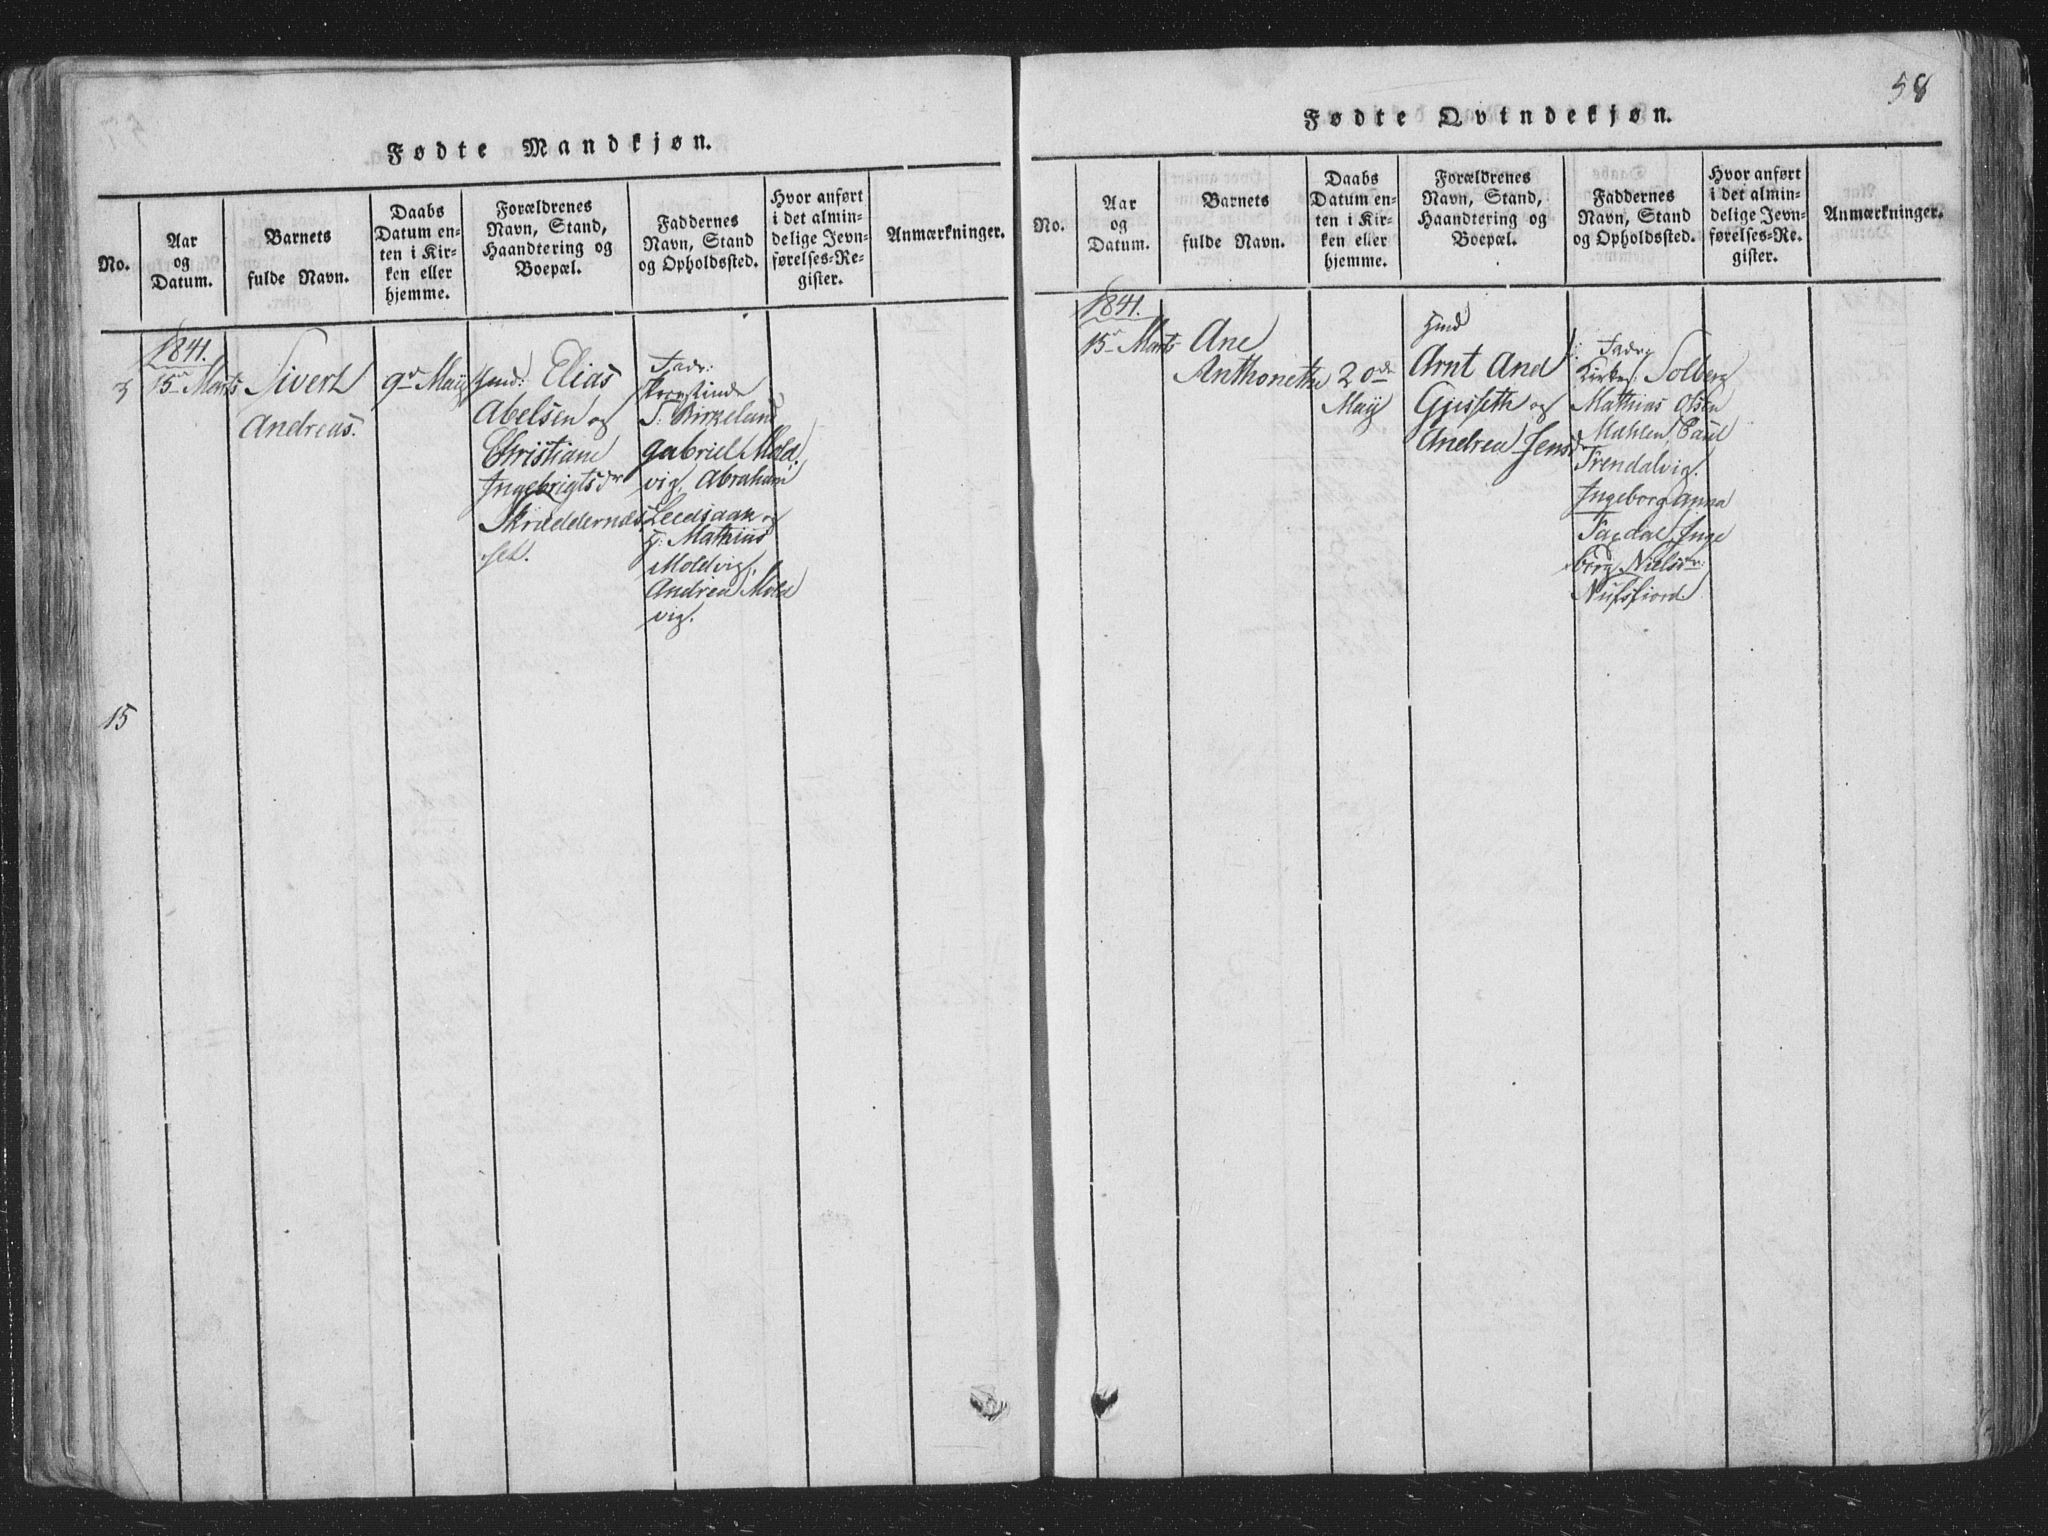 Fødte Mandkjøn.
No.
Aar
og
Datum.
Barnets
fulde Navn.
Daabs
Datum en-
ten i Kir-
ken eller
hjemme.
Forældrenes
Navn, Stand,
Haandtering og
Boepæl.
Faddernes
Navn, Stand
og Opholdssted.
Hvor anført
i det almin-
delige Jevn-
førelses-Re-
gister.
Anmærkninger.
1841.
15 Marts
Sivert
Andreas.
9 Maij
Elias
Abelsen og
Christiane
Ingebrigtsdr
Fadr:
T: Birkeland
Gabriel Mold,
vig, Abraham
og
G: Mathias
Moldvig,
Andrea Mold
vig.
15
58
Fødte Qvindekjøn.
No.
Aar
og
Datum.
Barnets
fulde Navn.
Daabs
Datum en-
ten i Kir-
ken eller
hjemme.
Forældrenes
Navn, Stand,
Haandtering og
Boepæl.
Faddernes
Navn, Stand
og Opholdssted.
Hvor anført
i det almin-
delige Jevn-
førelses-Re-
gister.
Anmærkninger.
1841.
15 Marts
Ane
Anthonette
20de
Maij
Gmd
Arnt And
Gjisseth og
Andrea Jensdr
Fadr
Kirkes: Solberg
Mathias Olsen
Mahlen, Paul
Trendalvig.
Ingeborg anna
Fagdal, Inge
borg Nielsdr:
Nufsfiord.